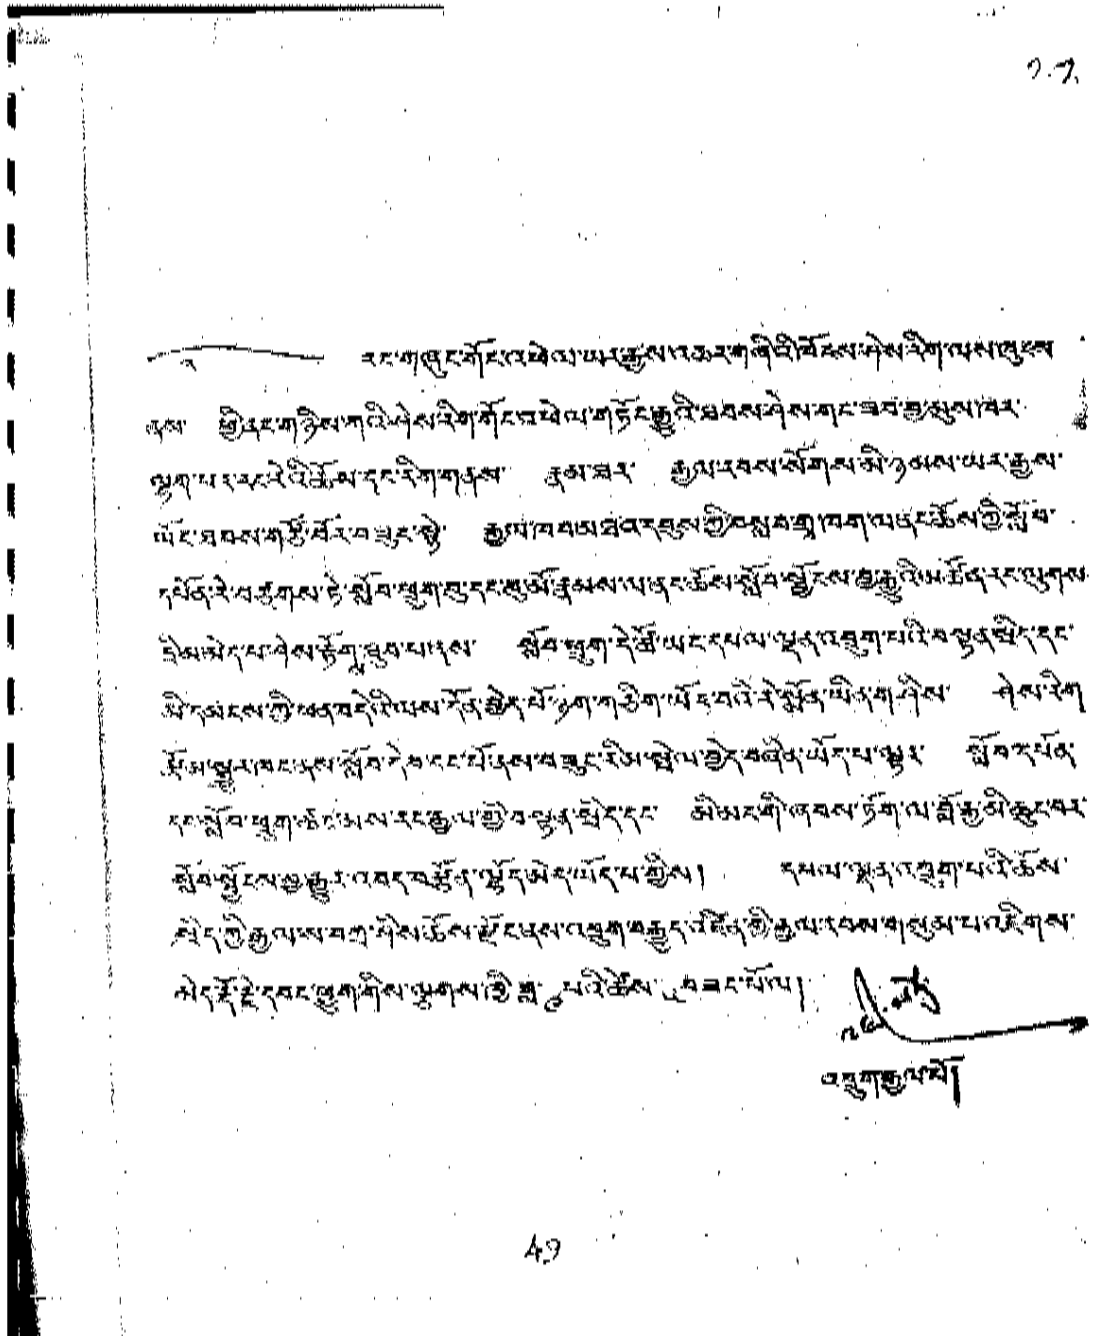 ༢.༡.
རང་གཞུང་གོང་འཕེལ་ཡར་རྒྱས་འཆར་གཞིའི་ཐོངས་ཤེས་རིག་ལས་ཁུངས
ནས་ ཕྱི་ནང་གཉིས་ཀའི་ཤེས་རིག་གོང་འཕེལ་གཏོང་རྒྱུའི་ཐབས་ཤེས་གང་ཟབ་བྱ་མུས་ཁར་
ལྷག་པར་རང་རེའི་ཆོས་དང་རིག་གནས་ རྣམ་ཐར་ རྒྱལ་རབས་སོགས་མི་ཉམས་ཡར་རྒྱས་
ཡོང་ཐབས་གཙོ་བོར་བཟུང་སྟེ་ རྒྱལ་ཁབ་མཐའ་དབུས་ཀྱི་བསླབ་གྲྭ་ཁག་ལ་ནང་ཆོས་ཀྱི་སློབ་
དཔོན་རེ་བཙུགས་ཏེ་སློབ་ཕྲུག་བུ་དང་བུ་མོ་རྣམས་ལ་ནང་ཆོས་སློབ་སྦྱོངས་བྱ་རྒྱུའི་མཚོན་རང་ལུགས
དྲི་མ་མེད་པ་ཤེས་རྟོགས་ཐུབ་པ་དས་ སློབ་ཕྲུག་དེ་ཚོ་ཡང་དཔལ་ལྡན་འབྲུག་པའི་བསྟན་སྲིད་དང་
མི་དམངས་ཀྱི་ཕན་བདེའི་ལས་དོན་བྱེད་པོ་ཤ་སྟག་ཅིག་ཡོང་བའི་རེ་སྨོན་ཡིན་གཤིས་ ཤེས་རིག
རྩོམ་སྒྱུར་ཁང་ནས་སློབ་དེབ་དང་པོ་ནས་བཟུང་རིམ་སྤེལ་བྱེད་བཞིན་ཡོད་པ་ལྟར་ སློབ་དཔོན་
དང་སློབ་ཕྲུག་ཚང་མས་རང་རྒྱལ་གྱི་བསྟན་སྲིད་དང་ མི་མང་གི་ཞབས་ཏོག་ལ་བློ་རྒྱ་མི་ཆུང་བར་
སློབ་སྦྱོངས་བྱ་རྒྱུར་འབད་བརྩོན་ལྷོད་མེད་ཡོད་པ་གྱིས། དཔལ་ལྡན་འབྲུག་པའི་ཆོས་
སྲིད་ཀྱི་རྒྱལ་ས་བཀྲ་ཤིས་ཆོས་རྫོང་ནས་འབྲུག་བརྒྱུད་འཛིན་གྱི་རྒྱལ་རབས་གསུམ་པ་འཇིགས་
མེད་རྡོ་རྗེ་དབང་ཕྱུག་གིས་ལྕགས་ཁྱི་ཟླ་ པའི་ཚེས་ བཟང་པོ་ལ།
འབྲུག་རྒྱལ་པོ།
49